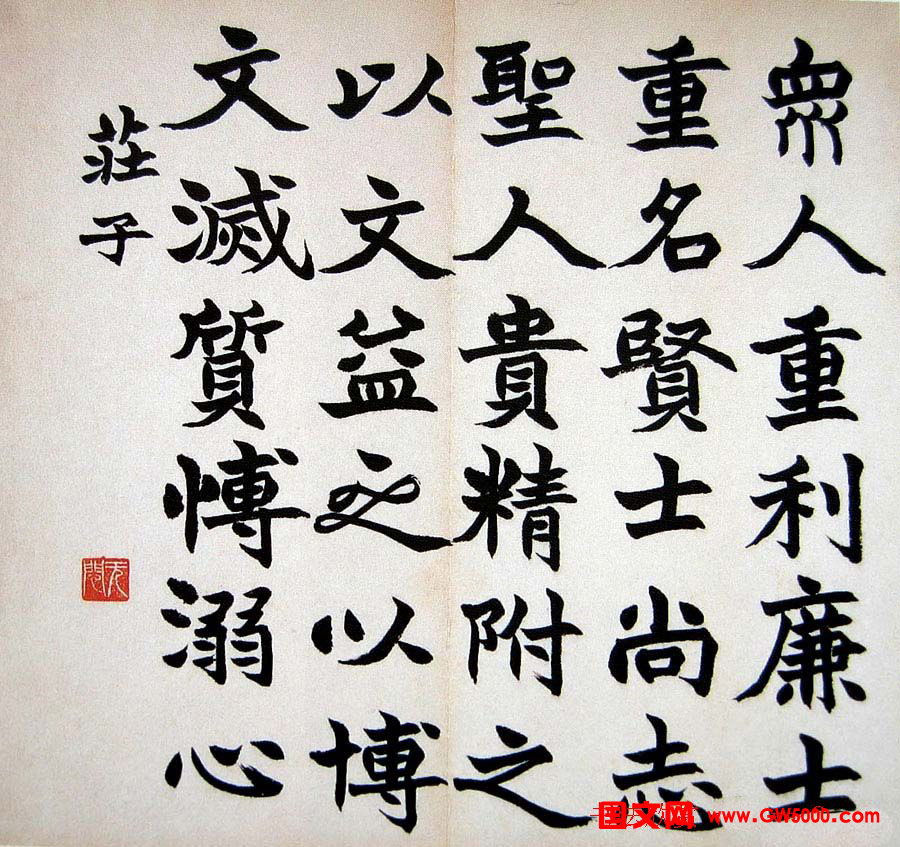 眾人重利廉士
重名賢士尚志
聖人貴精附之
以文益之以博
文滅質愽溺心
莊子
天問
国文网 www.GW5000.com